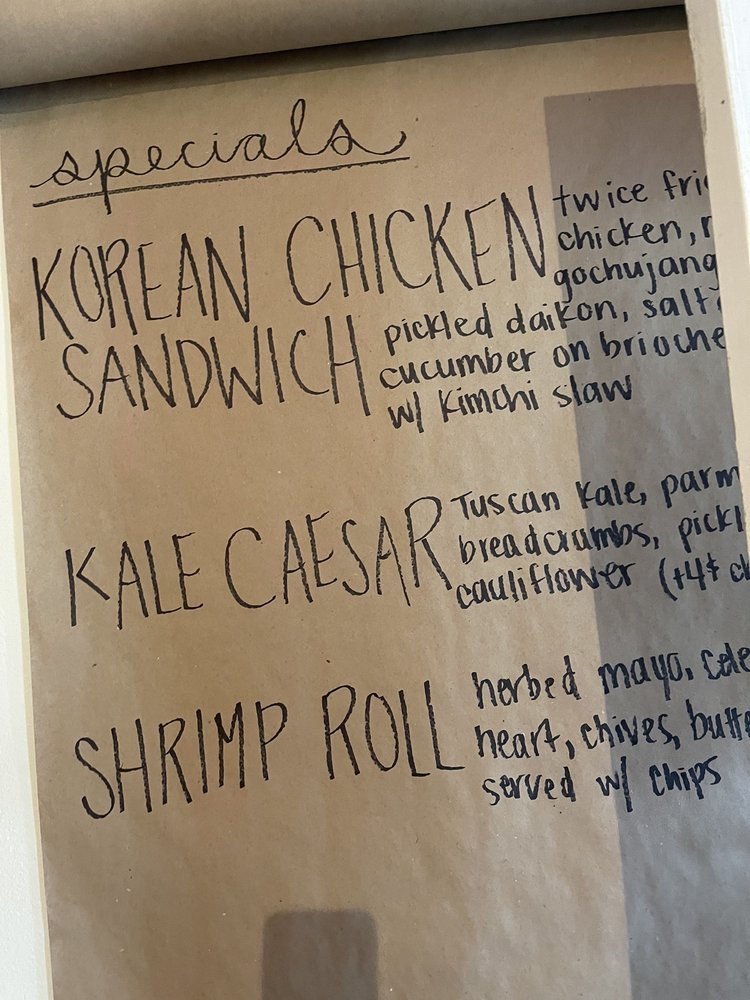 specials
KOREAN CHICKEN
SANDWICH
twice
chicken,
gochujang
pickled daikon,
cucumber on brioche
w/ kimchi slaw
KALE CAESAR
Tuscan kale,
breadcrumbs,
cauliflower (+4$
SHRIMP ROLL
herbed mayo,
heart, chives,
served w/ chips